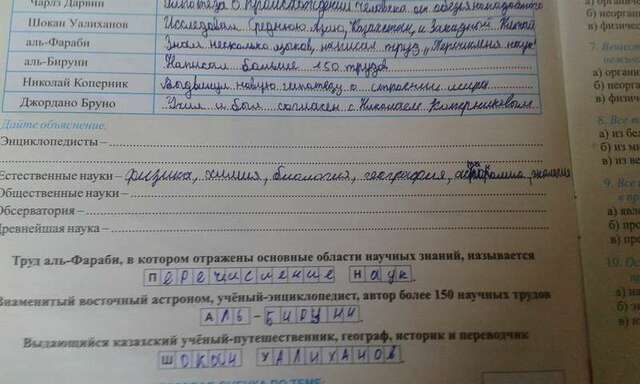 Чарлз Дарвин Гипотеза о происхождении человека от обезьяноподобного
Шокан Уалиханов Исследовал Среднюю Азию, Казахстан, и Западный Китай
аль-Фараби Знал несколько языков, написал труд „Перечисления наук"
аль-Бируни Написал больше 150 трудов
Николай Коперник Выдвинул новую гипотезу о строении мира
Джордано Бруно Учил и был согласен с Николаем Коперниковым
Дайте объяснение.
Энциклопедисты –
Естественные науки – физика, химия, биология, география, астрономия, экология
Общественные науки –
Обсерватория –
Древнейшая наука –
Труд аль-Фараби, в котором отражены основные области научных знаний, называется
Перечисление наук.
Знаменитый восточный астроном, учёный-энциклопедист, автор более 150 научных трудов
Аль – Бируни.
Выдающийся казахский учёный-путешественник, географ, историк и переводчик
Шокан Уалиханов.
а) органи
б) неорган
в) физичес
а) орган
б) неорга
в) физич
8. Все т
а) из бе
б) из м
в) из ве
9. Все
а) явл
б) про
в) про
10. Ос